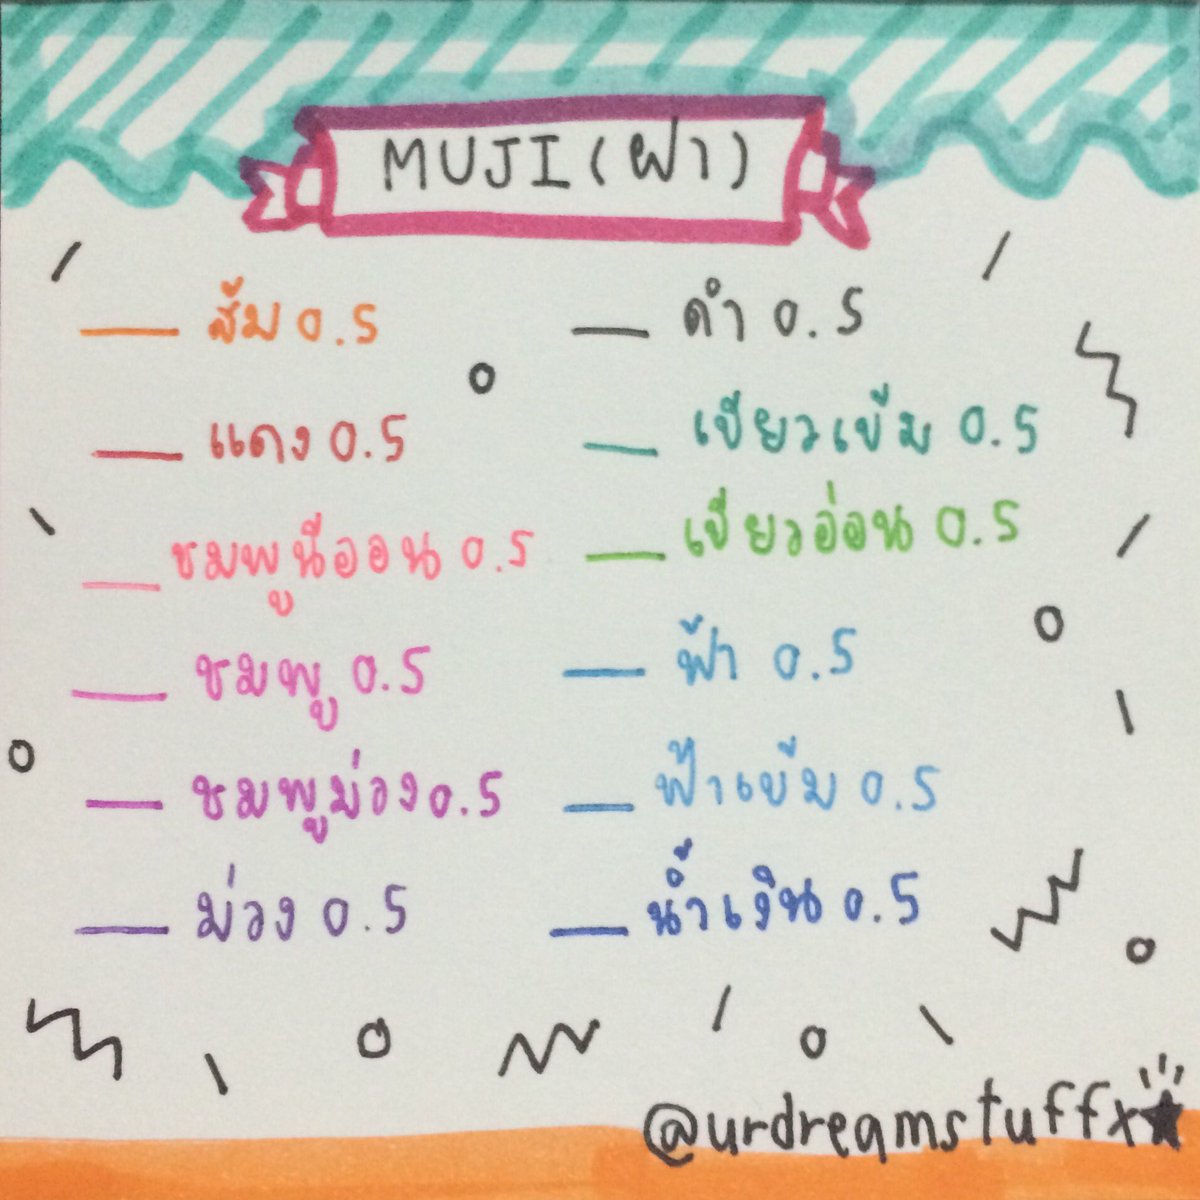 MUJI (ฝา)
ส้ม 0.5
แดง 0.5
ชมพูนีออน 0.5
ชมพู 0.5
ชมพูม่วง 0.5
ม่วง 0.5
ดำ 0.5
เขียวเข้ม 0.5
เขียวอ่อน 0.5
ฟ้า 0.5
ฟ้าเข้ม 0.5
น้ำเงิน 0.5
@urdreamstuffx